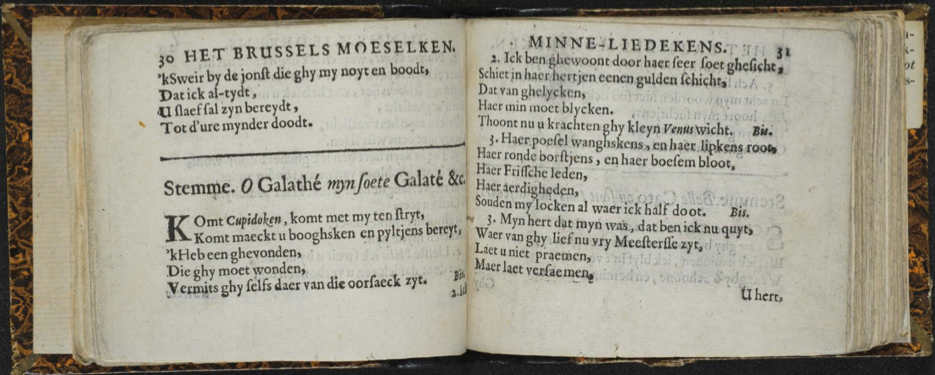 30 HET BRUSSELS MOESELKEN.
'kSweir by de jonst die ghy my noyt en boodt,
Dat ick al-tydt,
U slaef sal zyn bereydt,
Tot d'ure mynder doodt.
Stemme. O Galathé myn soete Galaté &c.
KOmt Cupidoken, komt met my ten stryt,
Komt maeckt u booghsken en pyltjens bereyt,
'kHeb een ghevonden,
Die ghy moet wonden,
Vermits ghy selfs daer van die oorsaeck zyt. Bis.
2. Ick
MINNE-LIEDEKENS. 31
2. Ick ben ghewoont door haer seer soet ghesicht,
Schiet in haer hertjen eenen gulden schicht,
Dat van ghelycken,
Haer min moet blycken.
Thoont nu u krachten ghy kleyn Venus wicht. Bis.
3. Haer poesel wanghskens, en haer lipkens root,
Haer ronde borstjens, en haer boesem bloot,
Haer Frissche leden,
Haer aerdigheden,
Souden my locken al waer ick half doot. Bis.
3. Myn hert dat myn was, dat ben ick nu quyt,
Waer van ghy lief nu vry Meestersse zyt,
Laet u niet praemen,
Maer laet versaemen,
U hert,